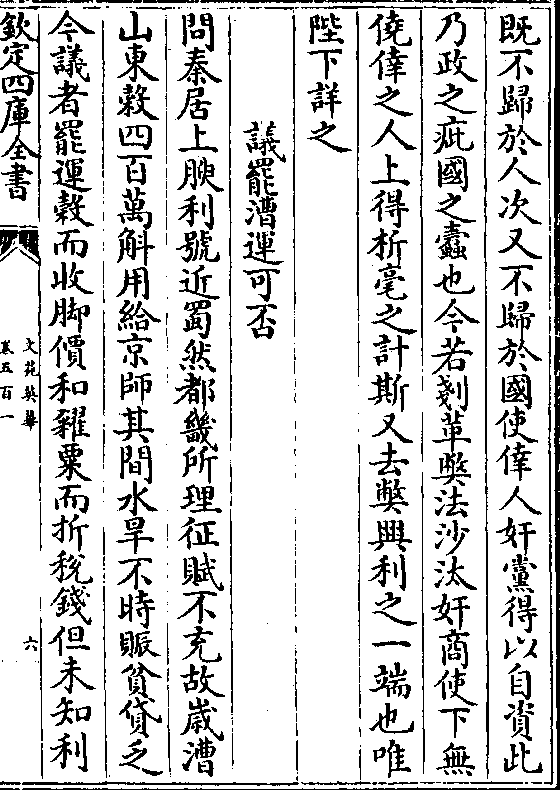 既不歸於人次又不歸於國使倖人奸黨得以自資此
乃政之疵國之蠹也今若剗革獘法沙汰奸商使下無
僥倖之人上得析毫之計斯又去獘興利之一端也唯
陛下詳之
議罷漕運可否
問秦居上腴利號近蜀然都畿所理征賦不充故歲漕
山東榖四百萬斛用給京師其間水旱不時賑貧貸乏
今議者罷運榖而收脚價和糴粟而折稅錢但未知利
欽定四庫全書
文苑英華
卷五百一
六